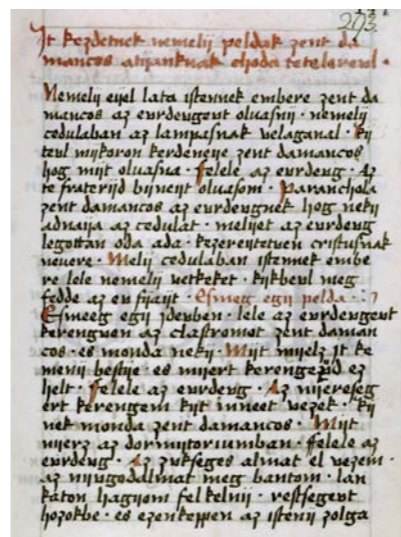 293
It kezdetnek nemelij peldak zent da
mancos atijanknak choda tetelerewl ·
Nemelij eijel lata istennek embere zent da
mancos az evrdevgevt oluasnij · nemelij
cedulaban az lampasnak velaganal · kij
tevl mijkoron kerdeneije zent damancos
hog mijt oluasna · felele az evrdevg · Az
te fraterijd bijneijt oluasom · Paranchola
zent damancos az evrdevgnek hog nekij
adnaija az cedulat · melijet az evrdevg
legottan oda ada · kezereijtetven cristusnak
nevere · Melij cedulaban istennek embe
re lele nemelij vetkeket · kijkbevl meg
fedde az ev fijaijt · Esmeg egij pelda ·
Esmeeg egij idevben · lele az evrdevgevt
kerengven az clastromot zent daman
cos · es monda nekij · Mijt mijelz it ke
menij bestije · es mijert kerengezijd ez
helt · felele az evrdevg · Az nijereseg
ert kerengem kijt inneet vezek · kij
nek monda zent damancos · Mijt
nijerz az dormitoriumban · ffelele az
evrdevg · Az zvkseges almat el vezem ·
az nijugodalmat meg bantom · lan
katon hagijom felkelnij · restsegevt
hozokbe · es ezenkeppen az istenij zolga